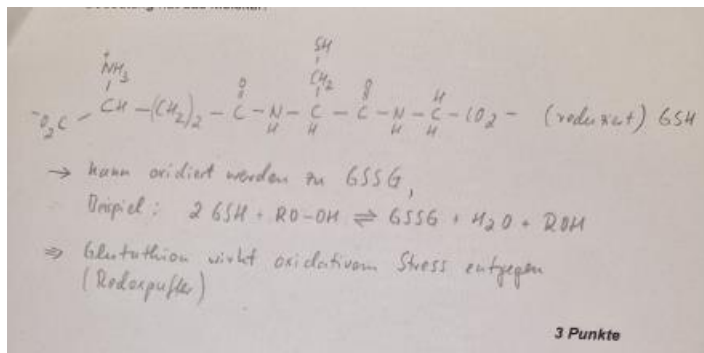 SH
⁺NH₃ O CH₂ O H
⁻O₂C – CH – (CH₂)₂ – C – N – C – C – N – C – CO₂⁻ (reduziert) GSH
H H H H
→ kann oxidiert werden zu GSSG,
Beispiel: 2 GSH + RO–OH ⇌ GSSG + H₂O + ROH
⇒ Glutathion wirkt oxidativem Stress entgegen
(Redoxpuffer)
3 Punkte